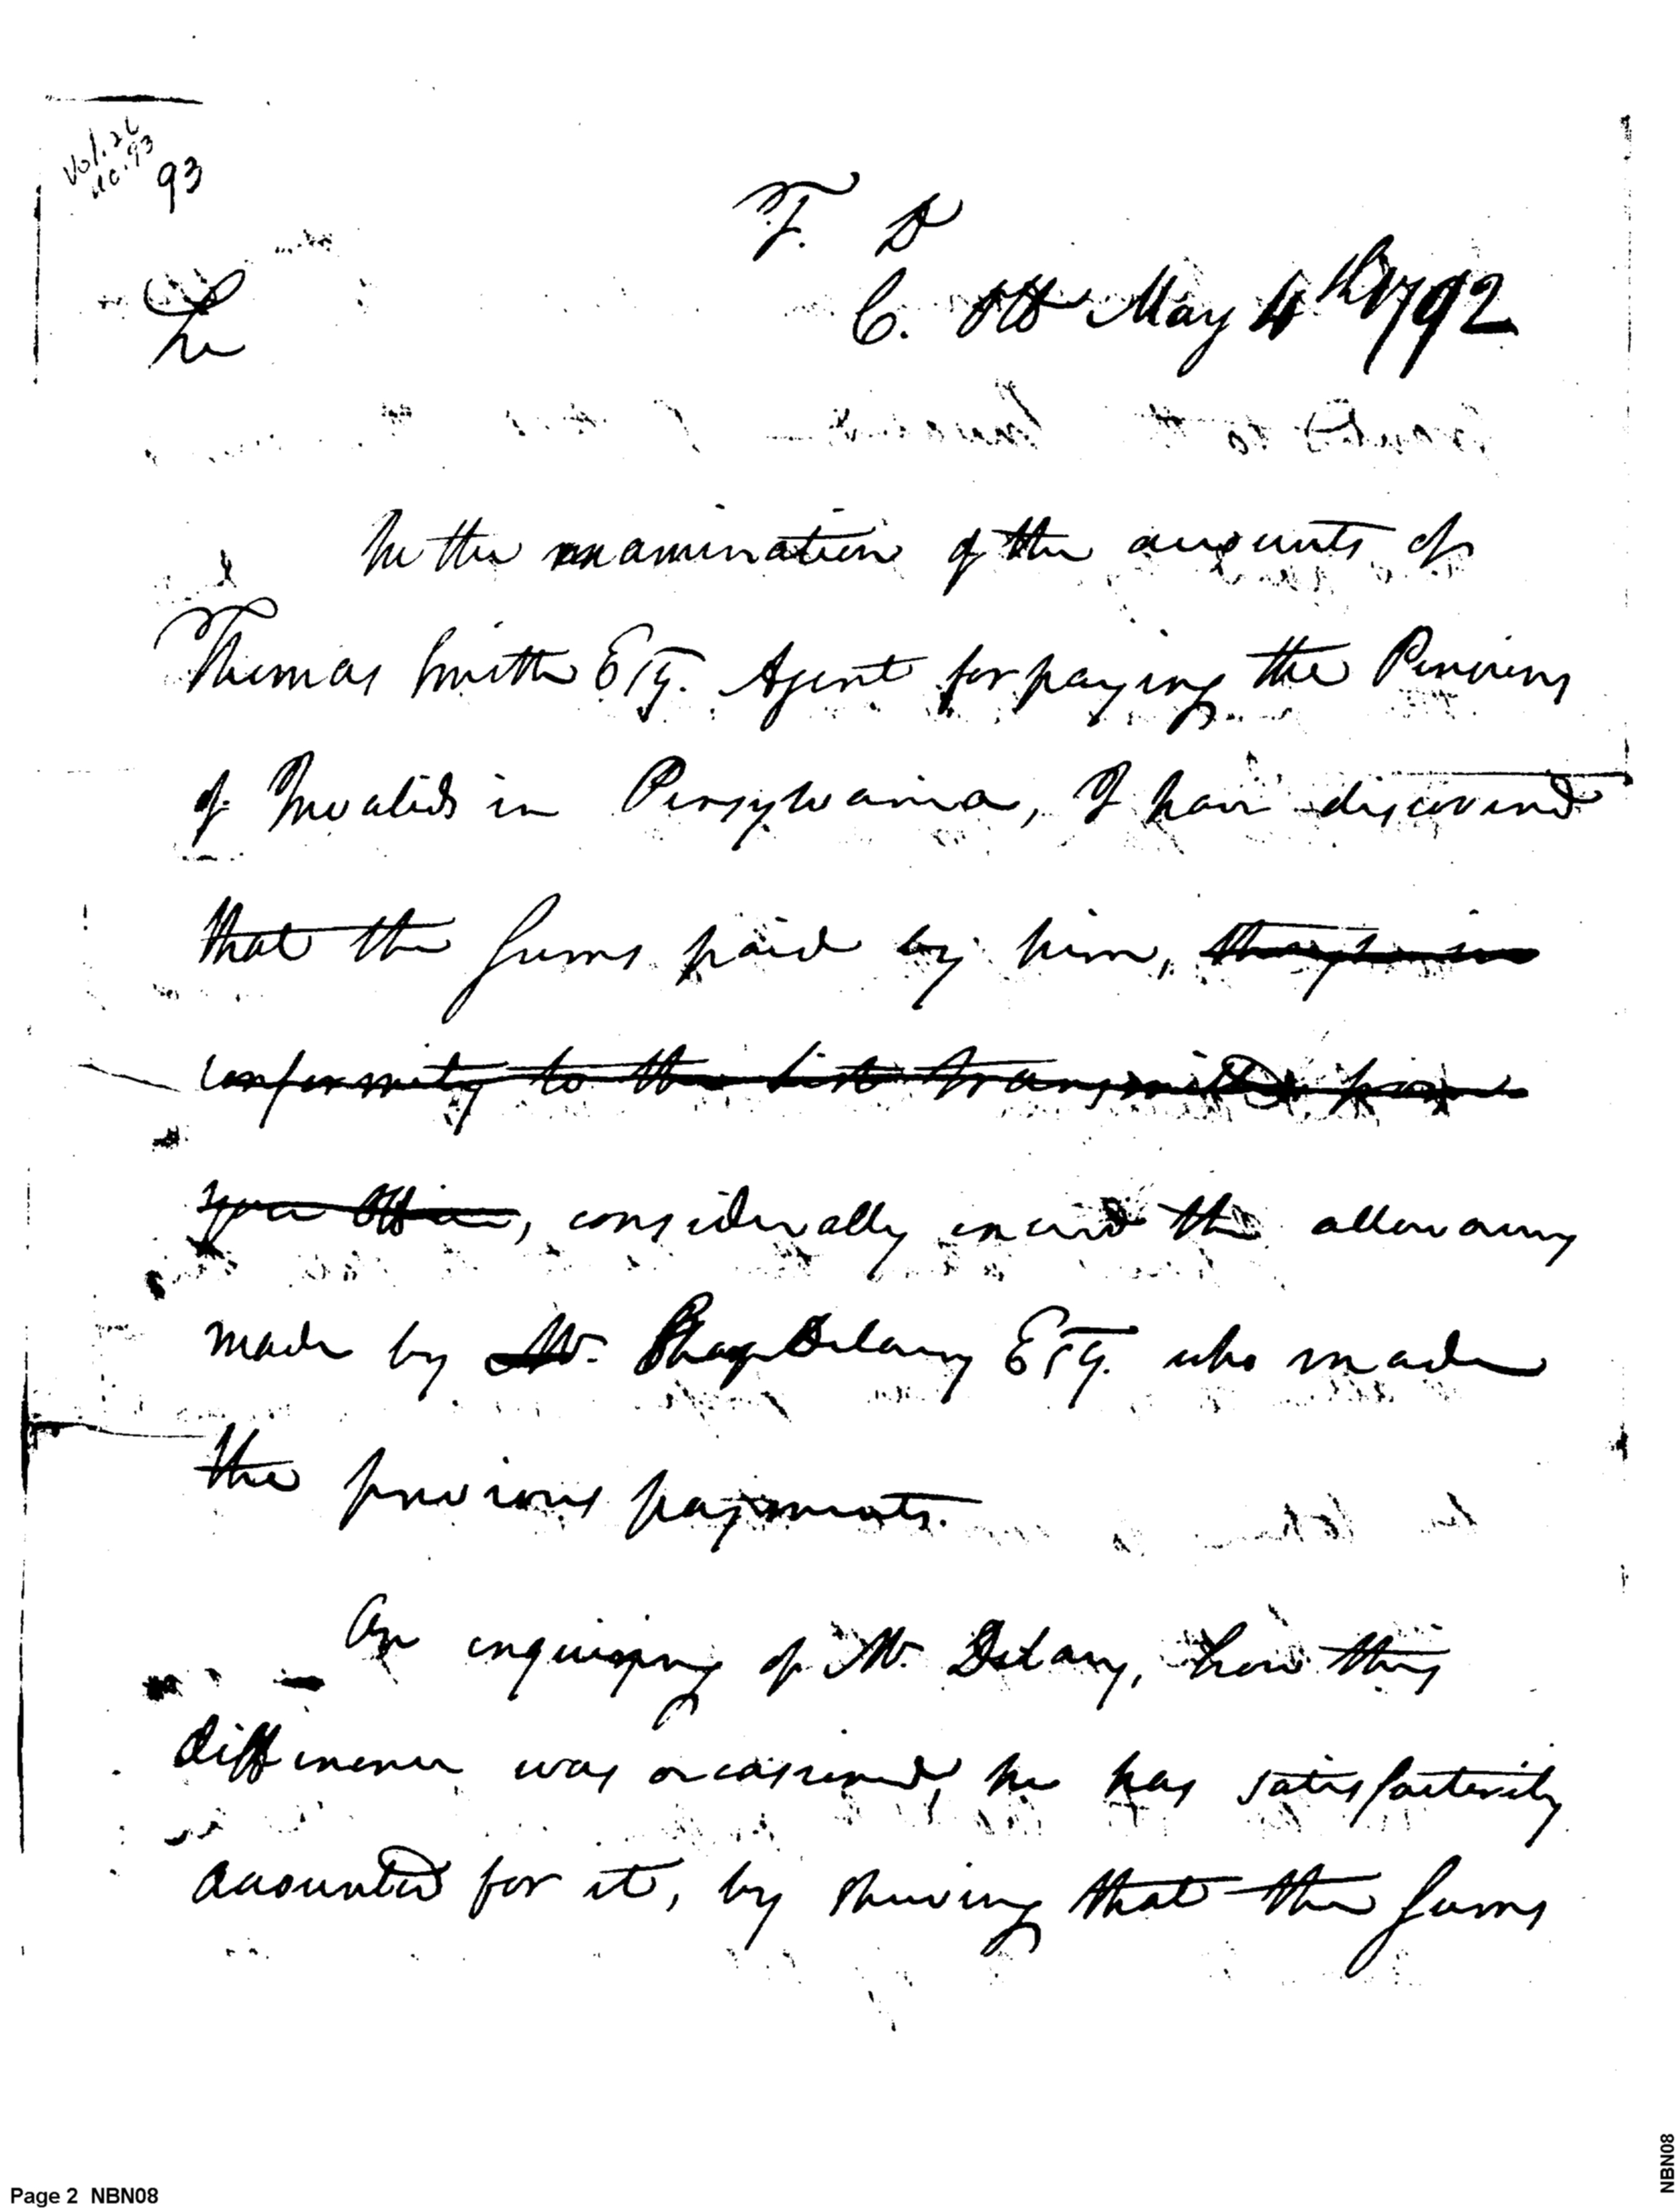 Vol. 26
no. 93
93
T. D
C. Off May 4th 1792
Sir
In the examination of the accounts of
Thomas Smith Esq. Agent for paying the Pensions
of Invalids in Pensylvania, I have discovered
that the sums paid by him, though in
conformity to the list transmitted from
your Office, considerally exceed the allowances
made by Mr. Sharp Delany Esq. who made
the previous payments.
On enquiring of Mr. Delany, how this
difference was occasioned, he has satisfactorily
accounted for it, by shewing that the sums
Page 2 NBN08
NBN08